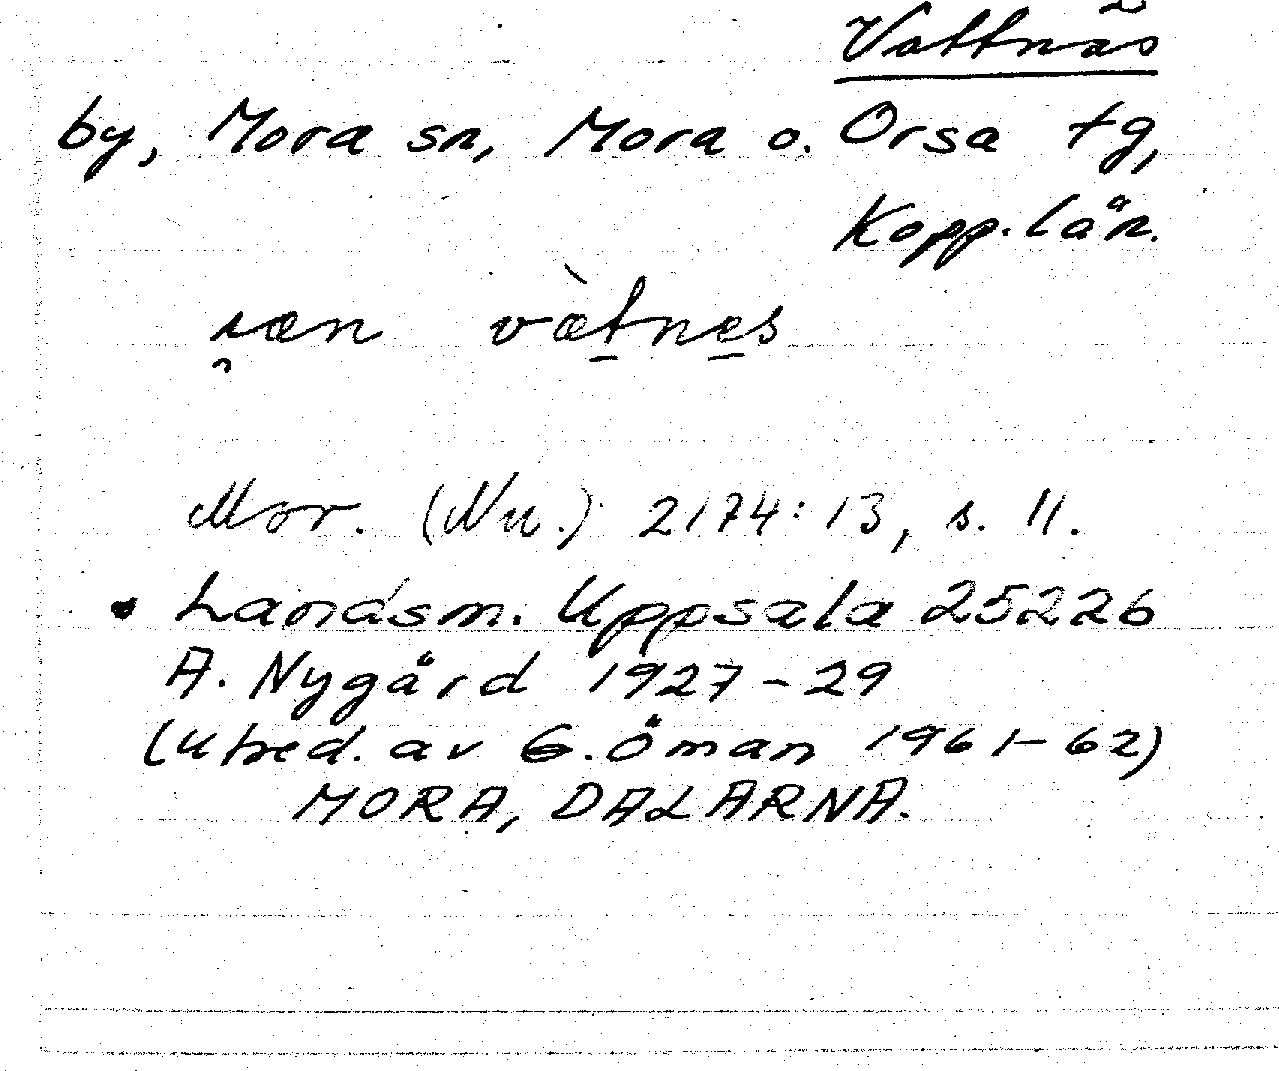 Vattnäs
by, Mora sn, Mora o. Orsa tg,
Kopp. län.
vàtnes
Mor. (Nu.) 2174:13, s. 11.
Landsm. Uppsala 25226
A. Nygård 1927-29
(utred. av G. Öman 1961-62)
MORA, DALARNA.